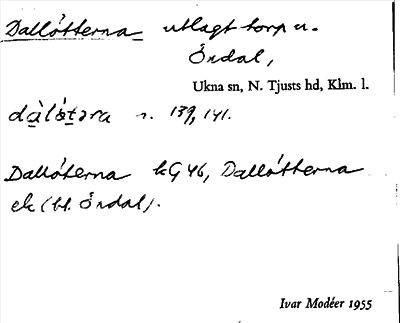 Dallótterna utlagt torp u.
Öndal,
Ukna sn, N. Tjusts hd, Klm. l.
dàlótəra n. 139, 141.
Dallóterna kG 46, Dallótterna
ek (bl. Öndal).
Ivar Modéer 1955